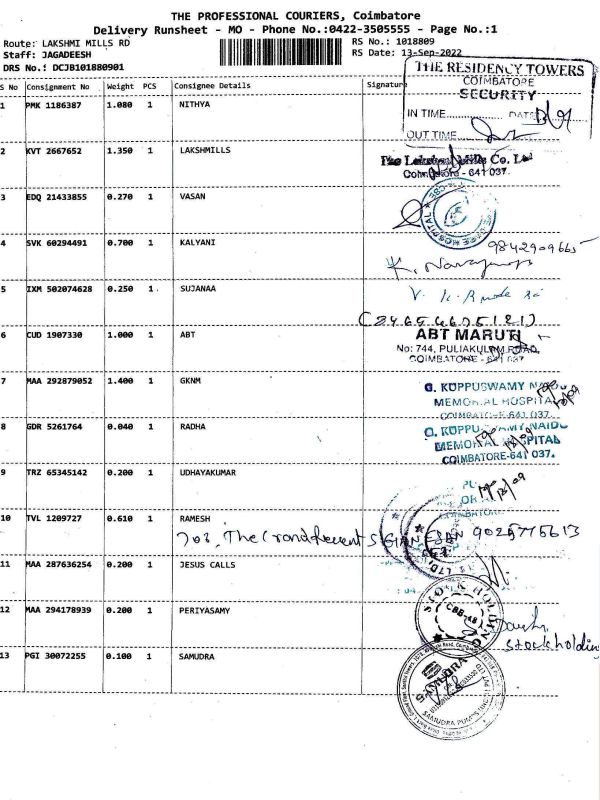 THE PROFESSIONAL COURIERS, Coimbatore
Delivery Runsheet - MO - Phone No.:0422-3505555 - Page No.:1
Route: LAKSHMI MILLS RD
RS No.: 1018809
Staff: JAGADEESH
RS Date: 13-Sep-2022
DRS No.: DCJB101880901
S No Consignment No Weight PCS Consignee Details Signature
THE RESIDENCY TOWERS
COIMBATORE
SECURITY
IN TIME DATE
OUT TIME
1 PMK 1186387 1.080 1 NITHYA
2 KVT 2667652 1.350 1 LAKSHMILLS
Mills Co. Ltd
Coimbatore - 641 037.
3 EDQ 21433855 0.270 1 VASAN
HOSPITAL
4 SVK 60294491 0.700 1 KALYANI
9842909665
5 IXM 502074628 0.250 1 SUJANAA
6 CUD 1907330 1.000 1 ABT
ABT MARUTI
No: 744, PULIAKULAM ROAD,
COIMBATORE - 641 037
7 MAA 292879052 1.400 1 GKNM
G. KUPPUSWAMY NAIDU
MEMORIAL HOSPITAL
COIMBATORE-641 037.
8 GDR 5261764 0.040 1 RADHA
G. KUPPUSWAMY NAIDU
MEMORIAL HOSPITAL
COIMBATORE-641 037.
9 TRZ 65345142 0.200 1 UDHAYAKUMAR
10 TVL 1209727 0.610 1 RAMESH
GANESAN 9025775613
11 MAA 287636254 0.200 1 JESUS CALLS
12 MAA 294178939 0.200 1 PERIYASAMY
STOCK HOLDING
CBE-48
Stockholding
13 PGI 30072255 0.100 1 SAMUDRA
SAMUDRA